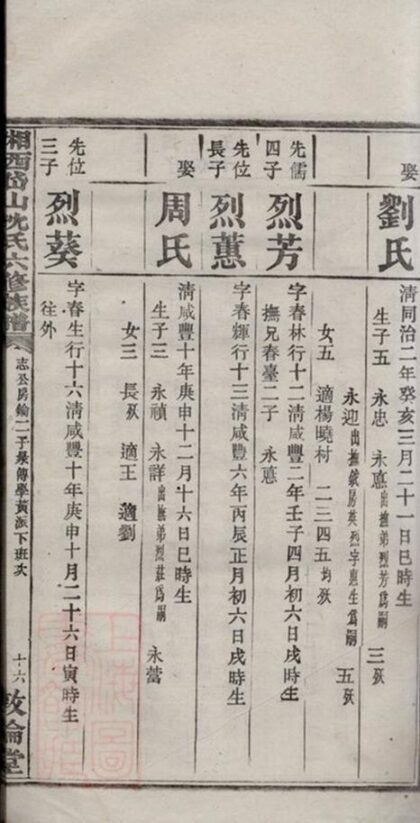 娶
劉氏
清同治二年癸亥三月二十一日巳時生
生子五 永忠 永憙出撫弟烈芳爲嗣 三殀
永迎出撫 爲嗣 五殀
女五 適楊曉村 二三四五均殀
先儒
四子
烈芳
字春林行十二清咸豐二年壬子四月初六日戌時生
撫兄春臺二子 永憙
先位
長子
烈蕙
字春輝行十三清咸豐六年丙辰正月初六日戌時生
娶
周氏
清咸豐十年庚申十二月十六日巳時生
生子三 永禎 永詳出撫弟烈莊爲嗣 永蕾
女三 長殀 適王 適劉
先位
三子
烈葵
字春生行十六清咸豐十年庚申十月二十六日寅時生
往外
湘西 山沈氏六修族譜
志公房 二子 傳學黃派下班次
十六
敦倫堂